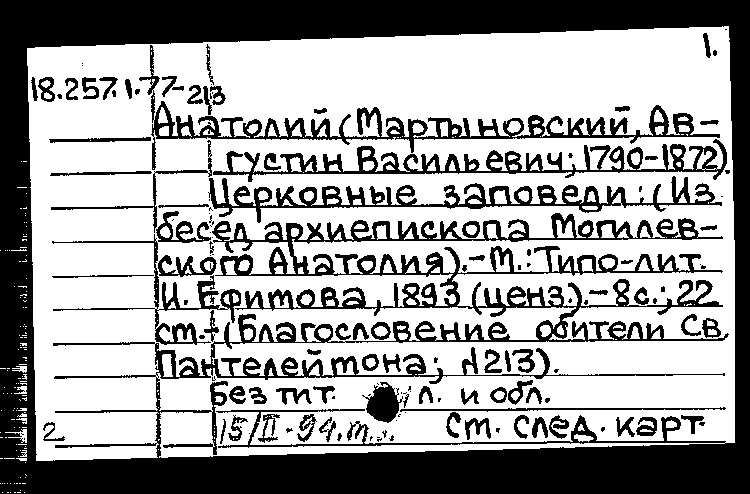 1.
18.257.1.77-213
Анатолий (Мартыновский, Ав-
густин Васильевич; 1790-1872).
Церковные заповеди: (Из
бесед архиепископа Могилев-
ского Анатолия).-М.: Типо-лит.
И. Ефимова, 1893 (ценз.).-8с.; 22
см.-(Благословение обители Св.
Пантелеймона; №213).
Без тит. л. и обл.
2 15/II-94.м.з. См. след. карт